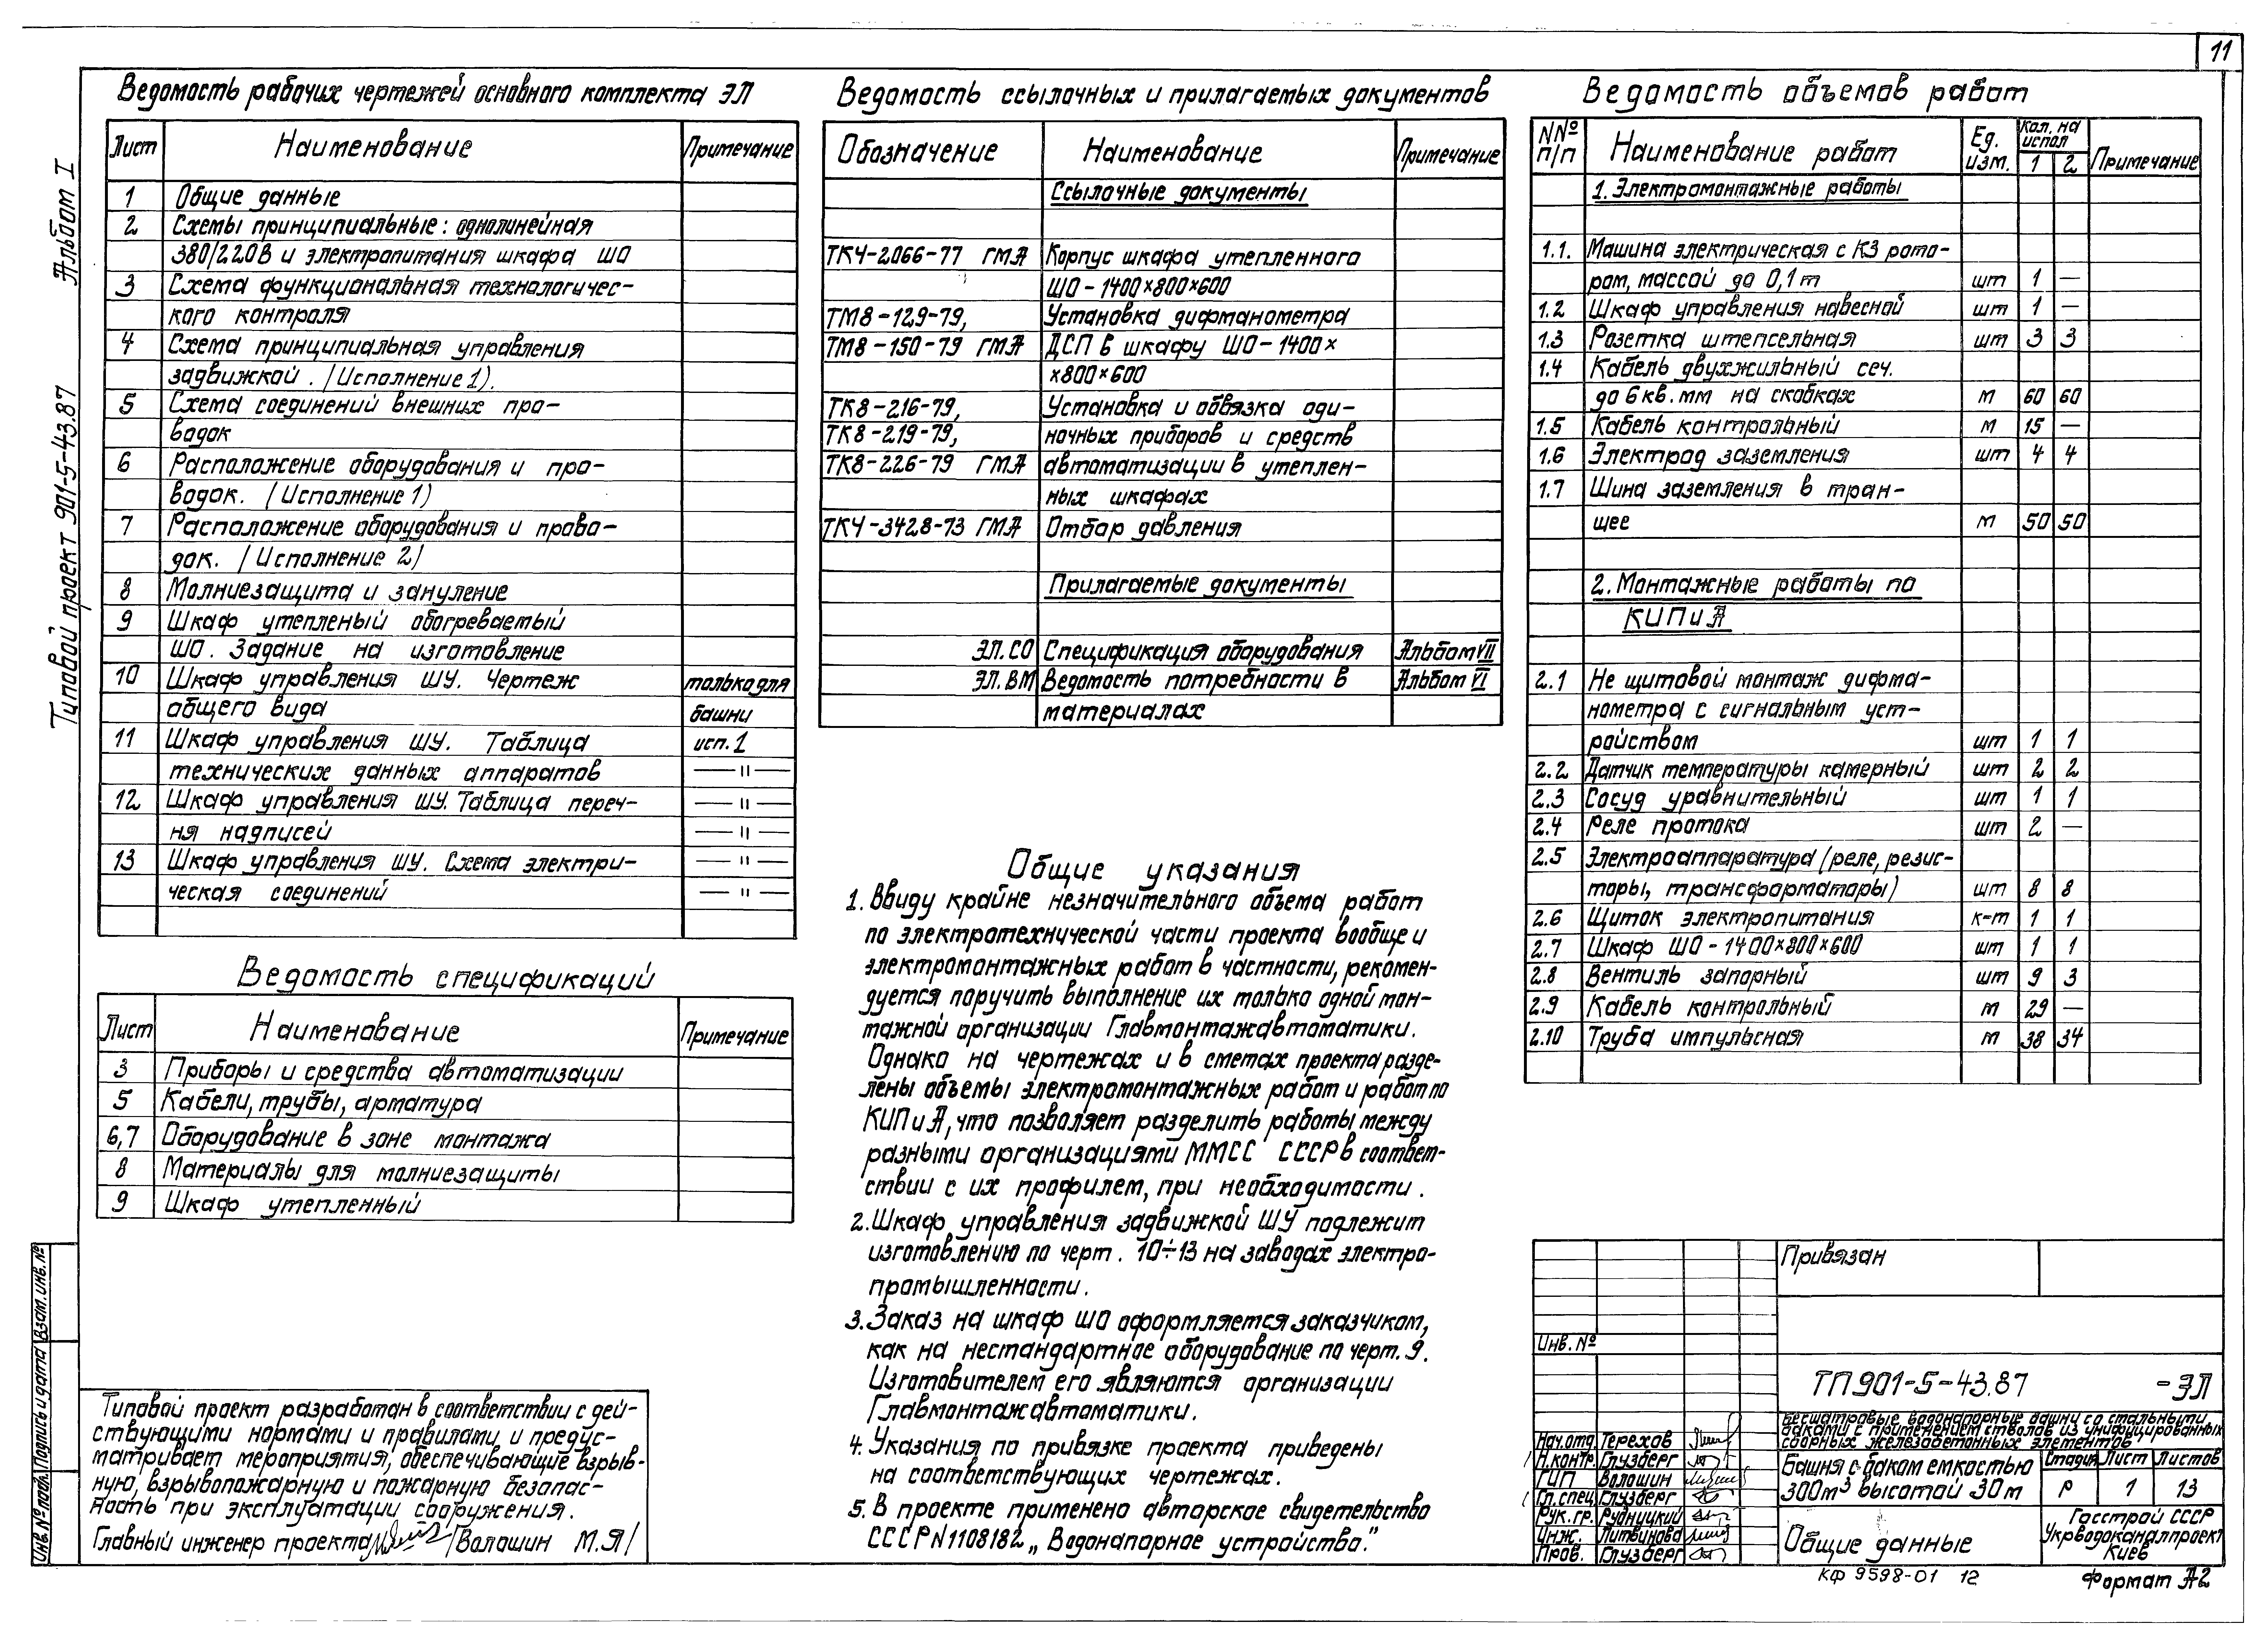 11
Альбом I
Типовой проект 901-5-43.87
Ведомость рабочих чертежей основного комплекта ЭЛ
Лист Наименование Примечание
1 Общие данные
2 Схемы принципиальные: однолинейная
380/220В и электропитания шкафа ШО
3 Схема функциональная технологичес-
кого контроля
4 Схема принципиальная управления
задвижкой. (Исполнение 1).
5 Схема соединений внешних про-
водок
6 Расположение оборудования и про-
водок. (Исполнение 1)
7 Расположение оборудования и прово-
док. (Исполнение 2)
8 Молниезащита и зануление
9 Шкаф утепленый обогреваемый
ШО. Задание на изготовление
10 Шкаф управления ШУ. Чертеж только для
общего вида башни
11 Шкаф управления ШУ. Таблица исп. 1
технических данных аппаратов — " —
12 Шкаф управления ШУ. Таблица переч- — " —
ня надписей — " —
13 Шкаф управления ШУ. Схема электри- — " —
ческая соединений — " —
Ведомость спецификаций
Лист Наименование Примечание
3 Приборы и средства автоматизации
5 Кабели, трубы, арматура
6,7 Оборудование в зоне монтажа
8 Материалы для молниезащиты
9 Шкаф утепленный
Типовой проект разработан в соответствии с дей-
ствующими нормами и правилами и предус-
матривает мероприятия, обеспечивающие взрыв-
ную, взрывопожарную и пожарную безопас-
ность при эксплуатации сооружения.
Главный инженер проекта /Волошин М.Я/
Инв. № подл. Подпись и дата Взам. инв. №
Ведомость ссылочных и прилагаемых документов
Обозначение Наименование Примечание
Ссылочные документы
ТК4-2066-77 ГМА Корпус шкафа утепленного
ШО-1400×800×600
ТМ8-129-79, Установка дифманометра
ТМ8-150-79 ГМА ДСП в шкафу ШО-1400×
×800×600
ТК8-216-79, Установка и обвязка оди-
ТК8-219-79, ночных приборов и средств
ТК8-226-79 ГМА автоматизации в утеплен-
ных шкафах
ТК4-3428-73 ГМА Отбор давления
Прилагаемые документы
ЭЛ.СО Спецификация оборудования Альбом VII
ЭЛ.ВМ Ведомость потребности в Альбом VI
материалах
Общие указания
1. Ввиду крайне незначительного объема работ
по электротехнической части проекта вообще и
электромонтажных работ в частности, рекомен-
дуется поручить выполнение их только одной мон-
тажной организации Главмонтажавтоматики.
Однако на чертежах и в сметах проекта разде-
лены объемы электромонтажных работ и работ по
КИП и А, что позволяет разделить работы между
разными организациями ММСС СССР в соответ-
ствии с их профилем, при необходимости.
2. Шкаф управления задвижкой ШУ подлежит
изготовлению по черт. 10÷13 на заводах электро-
промышленности.
3. Заказ на шкаф ШО оформляется заказчиком,
как на нестандартное оборудование по черт. 9.
Изготовителем его являются организации
Главмонтажавтоматики.
4. Указания по привязке проекта приведены
на соответствующих чертежах.
5. В проекте применено авторское свидетельство
СССР N 1108182 „Водонапорное устройство".
Ведомость объемов работ
NNº п/п Наименование работ Ед. изм. Кол. на испол 1 2 Примечание
1. Электромонтажные работы
1.1. Машина электрическая с КЗ рото-
ром, массой до 0,1т шт 1 —
1.2 Шкаф управления навесной шт 1 —
1.3 Розетка штепсельная шт 3 3
1.4 Кабель двухжильный сеч.
до 6 кв. мм на скобках м 60 60
1.5 Кабель контрольный м 15 —
1.6 Электрод заземления шт 4 4
1.7 Шина заземления в тран-
шее м 50 50
2. Монтажные работы по
КИП и А
2.1 Не щитовой монтаж дифма-
нометра с сигнальным уст-
ройством шт 1 1
2.2 Датчик температуры камерный шт 2 2
2.3 Сосуд уравнительный шт 1 1
2.4 Реле протока шт 2 —
2.5 Электроаппаратура (реле, резис-
торы, трансформаторы) шт 8 8
2.6 Щиток электропитания к-т 1 1
2.7 Шкаф ШО-1400×800×600 шт 1 1
2.8 Вентиль запорный шт 9 3
2.9 Кабель контрольный м 29 —
2.10 Труба импульсная м 38 34
Привязан
Инв. №
ТП 901-5-43.87 -ЭЛ
Бесшатровые водонапорные башни со стальными
баками с применением стволов из унифицированных
сборных железобетонных элементов
Нач. отд. Терехов
Н.контр. Глузберг
ГИП Волошин
Гл. спец. Глузберг
Рук. гр. Рудницкий
Инж. Литвинова
Пров. Глузберг
Башня с баком емкостью
300м³ высотой 30м
Стадия Лист Листов
Р 1 13
Общие данные
Госстрой СССР
Укрводоканалпроект
Киев
КФ 9598-01 12
Формат А2